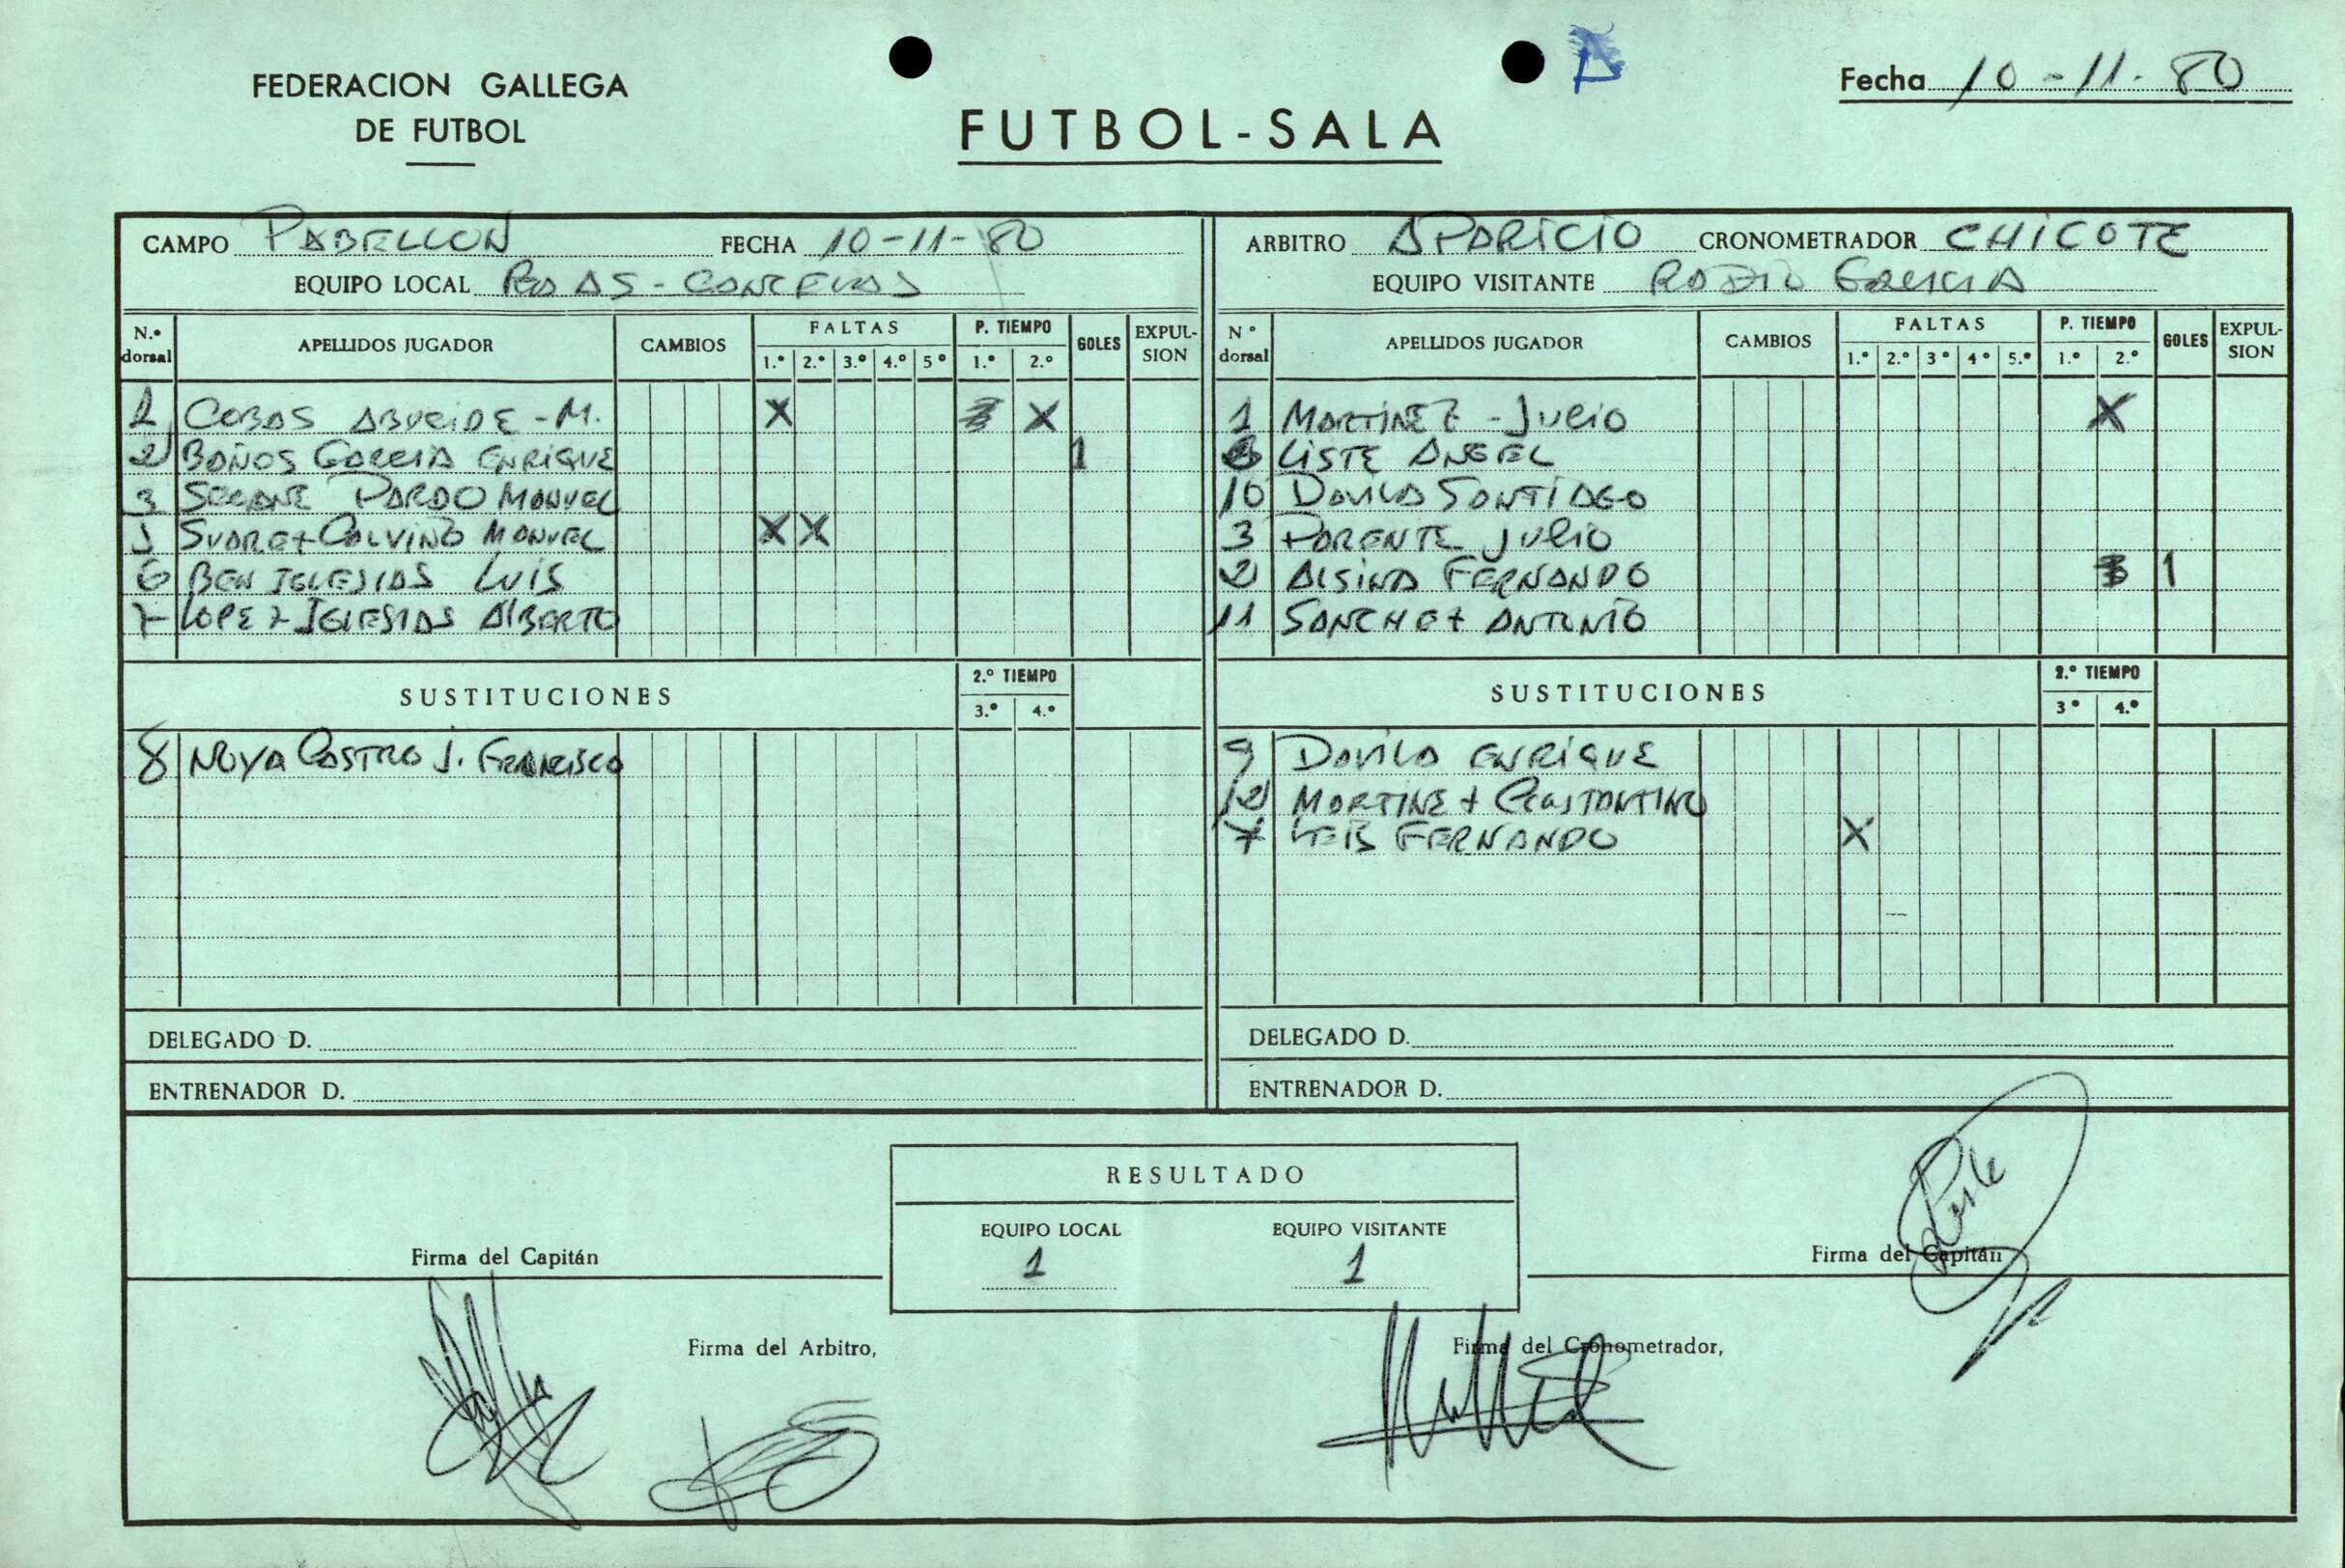 FEDERACION GALLEGA
DE FUTBOL
FUTBOL-SALA
Fecha 10-11-80
CAMPO PABELLON FECHA 10-11-80
EQUIPO LOCAL
N.º dorsal APELLIDOS JUGADOR CAMBIOS FALTAS 1.º 2.º 3.º 4.º 5º P. TIEMPO 1.º 2.º GOLES EXPULSION
COBAS ABUEIDE - M. X X
2 BAÑOS GARCIA ENRIQUE 1
3 SEOANE PARDO MANUEL
5 SUAREZ CALVIÑO MANUEL X X
6 BEN IGLESIAS LUIS
7 LOPEZ IGLESIAS ALBERTO
SUSTITUCIONES 2.º TIEMPO 3.º 4.º
8 NOYA CASTRO J. FRANCISCO
DELEGADO D.
ENTRENADOR D.
ARBITRO APARICIO CRONOMETRADOR CHICOTE
EQUIPO VISITANTE RADIO GALICIA
Nº dorsal APELLIDOS JUGADOR CAMBIOS FALTAS 1.º 2.º 3º 4º 5.º P. TIEMPO 1.º 2.º GOLES EXPULSION
1 MARTINEZ - JULIO X
LISTE ANGEL
10 DAVILA SANTIAGO
3 PARENTE JULIO
2 ALSINA FERNANDO 1
11 SANCHEZ ANTONIO
SUSTITUCIONES 2.º TIEMPO 3º 4.º
9 DAVILA ENRIQUE
12 MARTINEZ CONSTANTINO
7 LEIS FERNANDO X
DELEGADO D.
ENTRENADOR D.
RESULTADO
EQUIPO LOCAL EQUIPO VISITANTE
1 1
Firma del Capitán
Firma del Capitán
Firma del Arbitro,
Firma del Cronometrador,